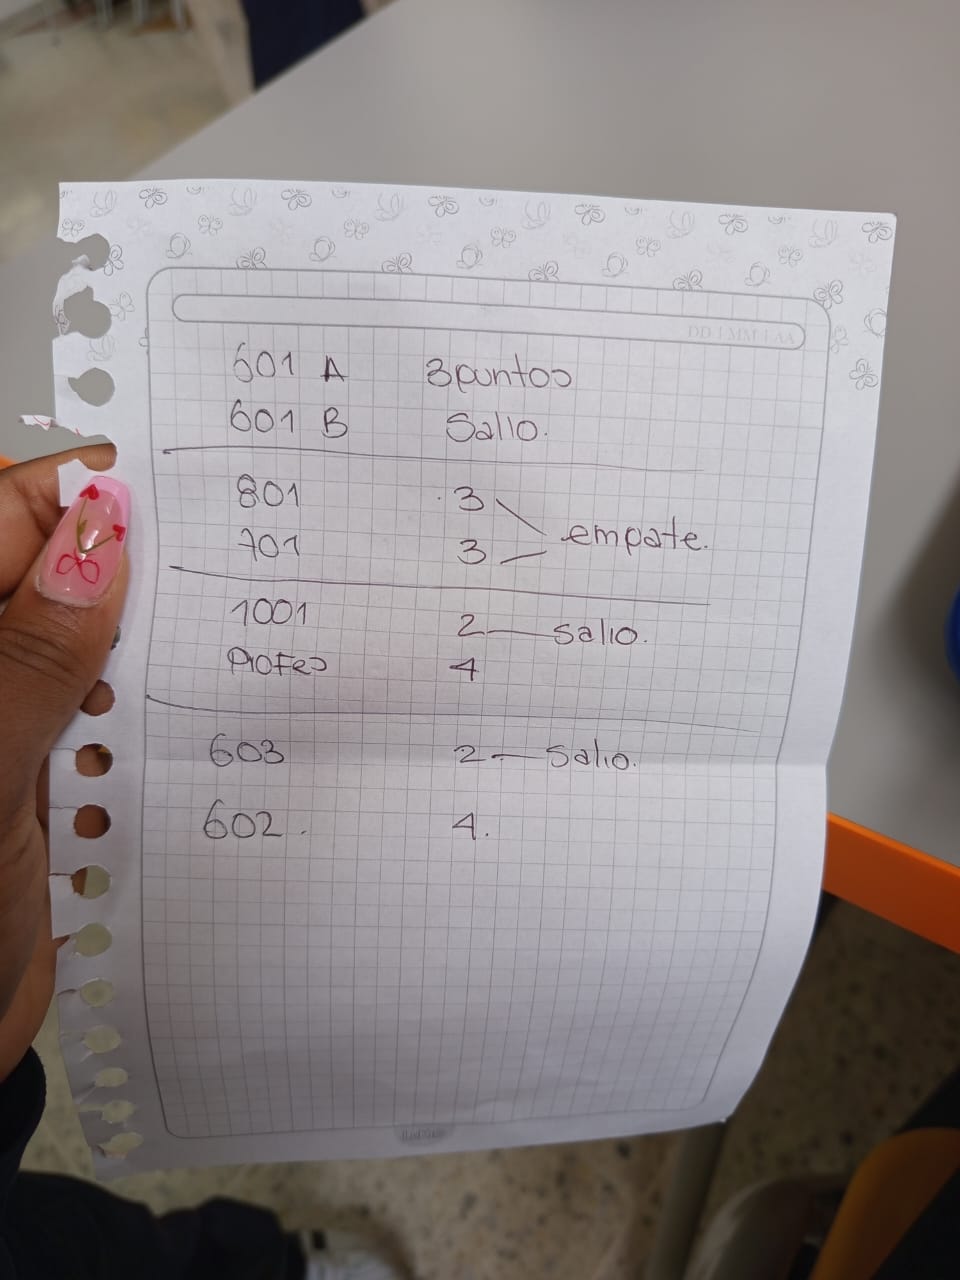 DD | MM | AA
601 A 3puntos
601 B Salio.
801 3
empate.
701 3
1001 2 — salio.
Profes 4
603 2 — Salio.
602. 4.